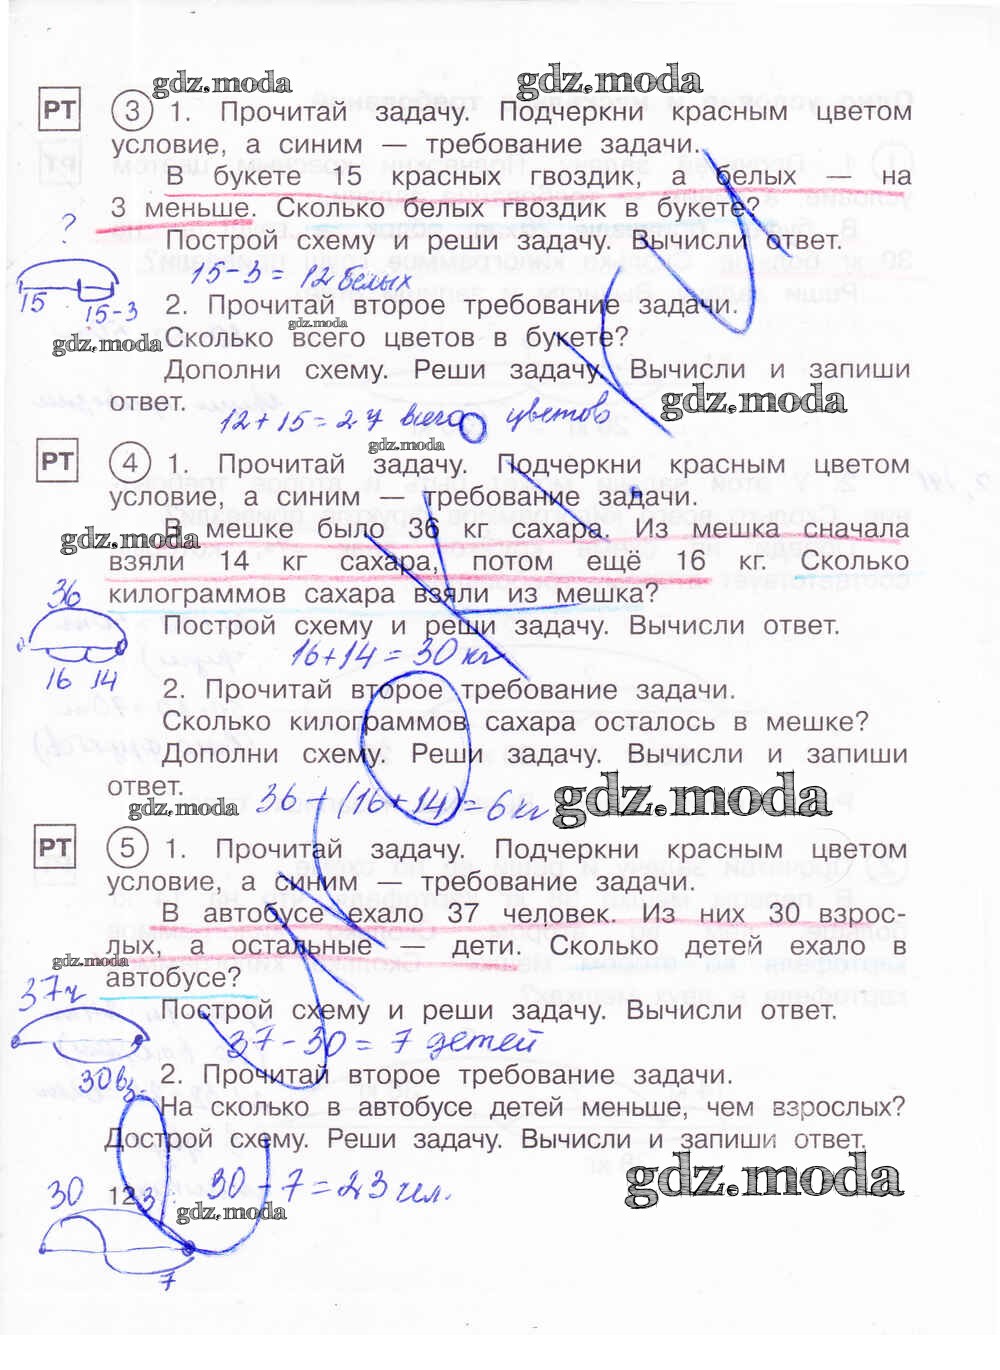 gdz.moda gdz.moda
РТ 3 1. Прочитай задачу. Подчеркни красным цветом
условие, а синим — требование задачи.
В букете 15 красных гвоздик, а белых — на
3 меньше. Сколько белых гвоздик в букете?
?
Построй схему и реши задачу. Вычисли ответ.
15-3=12 белых
15 15-3
2. Прочитай второе требование задачи.
gdz.moda
Сколько всего цветов в букете?
gdz.moda
Дополни схему. Реши задачу. Вычисли и запиши
ответ.
gdz.moda
12+15=27 всего цветов
gdz.moda
РТ 4 1. Прочитай задачу. Подчеркни красным цветом
условие, а синим — требование задачи.
В мешке было 36 кг сахара. Из мешка сначала
gdz.moda
взяли 14 кг сахара, потом ещё 16 кг. Сколько
килограммов сахара взяли из мешка?
36
Построй схему и реши задачу. Вычисли ответ.
16+14=30 кг
16 14
2. Прочитай второе требование задачи.
Сколько килограммов сахара осталось в мешке?
Дополни схему. Реши задачу. Вычисли и запиши
ответ.
gdz.moda gdz.moda
36-(16+14)=6 кг
РТ 5 1. Прочитай задачу. Подчеркни красным цветом
условие, а синим — требование задачи.
В автобусе ехало 37 человек. Из них 30 взрос-
лых, а остальные — дети. Сколько детей ехало в
gdz.moda
автобусе?
37ч
Построй схему и реши задачу. Вычисли ответ.
37-30=7 детей
30вз.
2. Прочитай второе требование задачи.
На сколько в автобусе детей меньше, чем взрослых?
Дострой схему. Реши задачу. Вычисли и запиши ответ.
gdz.moda
30 12 30-7=23 чел.
gdz.moda
7